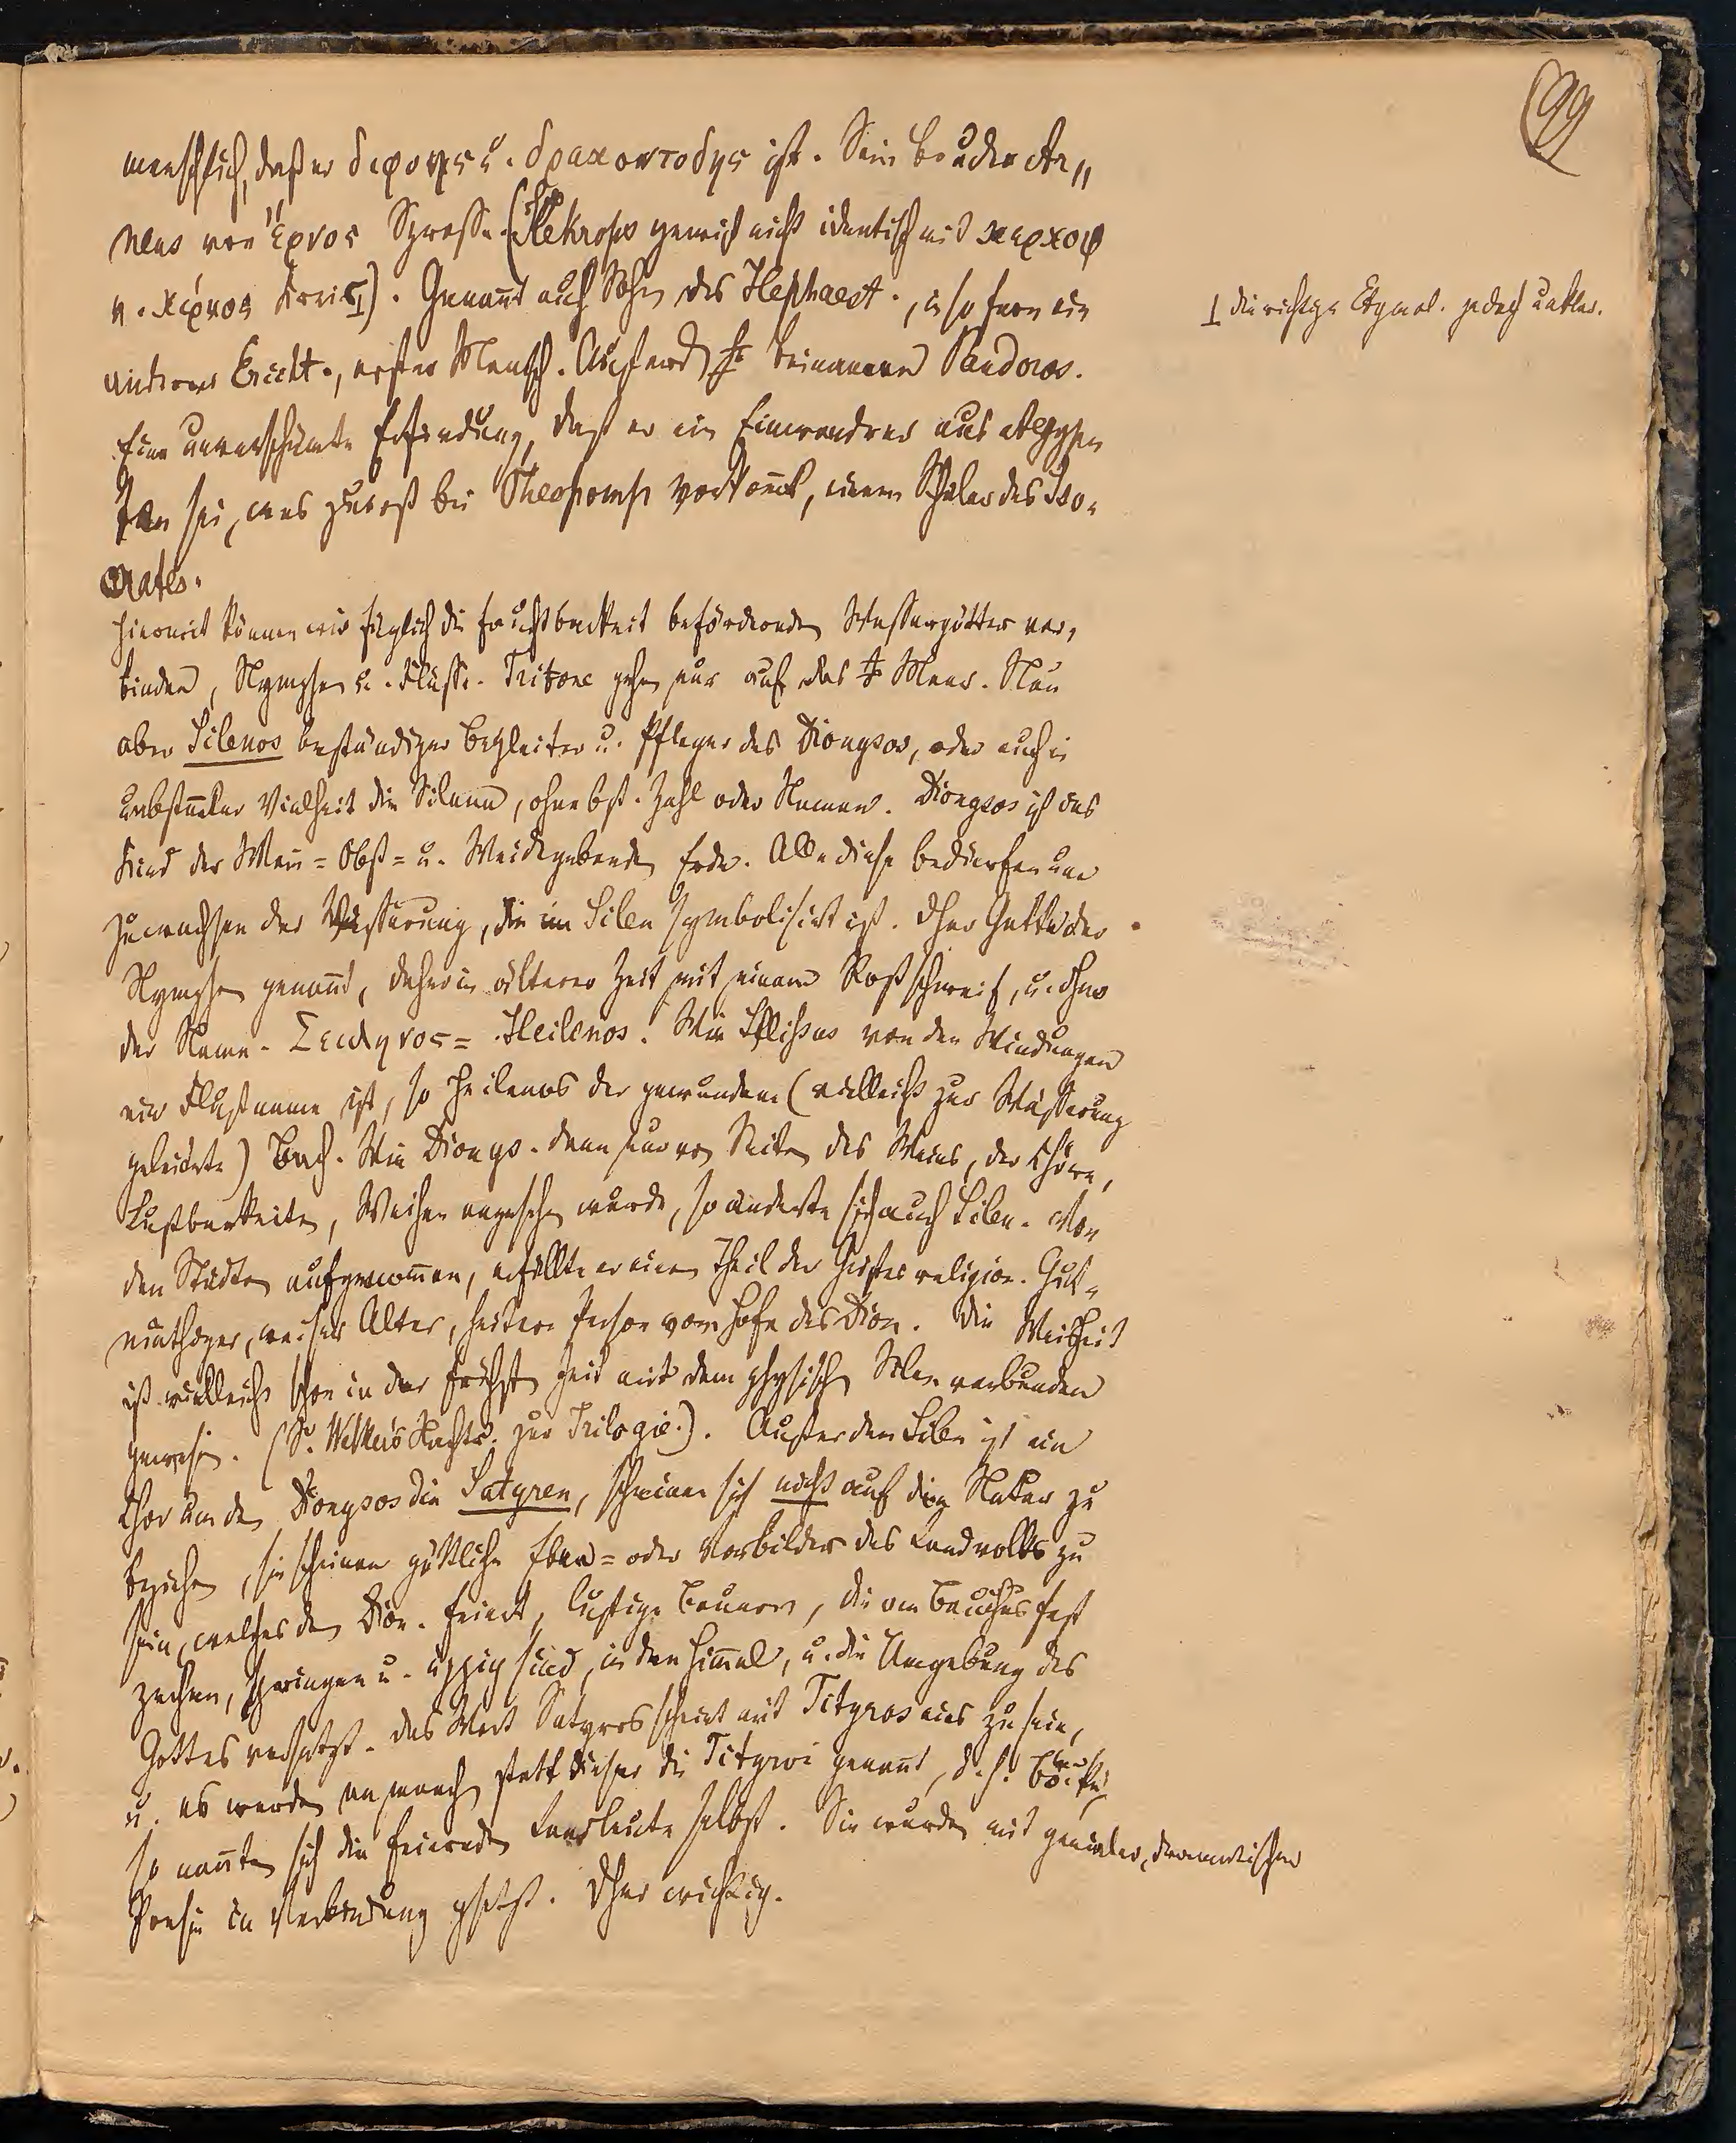 99
menschlich, daß er διφυης u. δρακοντοδης ist. Sein Bruder Ar„
neus von ἔρνος Sprosse. (Kekrops gewiß nicht identisch mit κερκοψ
v. κίρκος Kreis⊥). Genannt auch Sohn des Hephaest., in so fern ein
anderer Erichth., erster Mensch. Beinamen Pandoros.
Eine unverschämte Erfindung, daß er ein Einwandrer aus Aegyp
ten sei, was zuerst bei Theopomp vorkommt, einem Schüler des Iso-
crates.
⊥ die richtige Etymol. jedoch unklar.
Hiermit können wir füglich die Fruchtbarkeit befördernden Wassergötter ver-
binden, Nymphen u. Flüsse. Tritone gehen nur auf das Meer. Nun
aber Silenos beständiger Begleiter u. Pfleger des Dionysos, oder auch in
unbestimmter Vielheit die Silene, ohne best. Zahl oder Namen. Dionysos ist das
Kind der Wein= Obst= u. Weidegebenden Erde. Alle diese bedürfen um
zu wachsen der Wässerung, die im Silen symbolisirt ist. Dher Gatte der
Nymphen genannt, daher in älterer Zeit mit einem Roßschweif, u. dher
der Name. Σειληνος = Heilenos. Wie Ilissus von den Windungen
ein Flußname ist, so Heilenos der gewundene (vielleicht zur Wässerung
geleitete) Bach. Wie Dionys. dann nur von Seiten des Weins, der Chöre,
Lustbarkeiten, Weihen angesehen wurde, so änderte sich auch Silen. Von
den Städten aufgenommen, erfüllte er einen Theil der Geistes religion. Gut-
müthiger, weiser Alter, heitere Person vom Hofe des Dion. Die Weisheit
ist vielleicht schon in der frühsten Zeit mit dem physischen Silen verbunden
gewesen. (S. Welkers Nachtr. zur Trilogie.). Außer den Silen ist ein
Chor um den Dionysos die Satyren, scheinen sich nicht auf die Natur zu
beziehen, sie scheinen göttliche Eben= oder Vorbilder des Landvolks zu
sein, welches den Dion. feiert, lustige Bauern, die am Bacchusfest
zechen, springen u. üppig sind, in den Himmel, u. die Umgebung des
Gottes versetzt. Das Wort Satyros scheint mit Tityros eins zu sein,
u. es werden manch statt dieser die Tityroi genannt, d. h. Böcke,
so nannten sich die feiernden Landleute selbst. Sie wurden mit genialer, dramatischer
Poesie in Verbindung gesetzt. Dher wichtig.